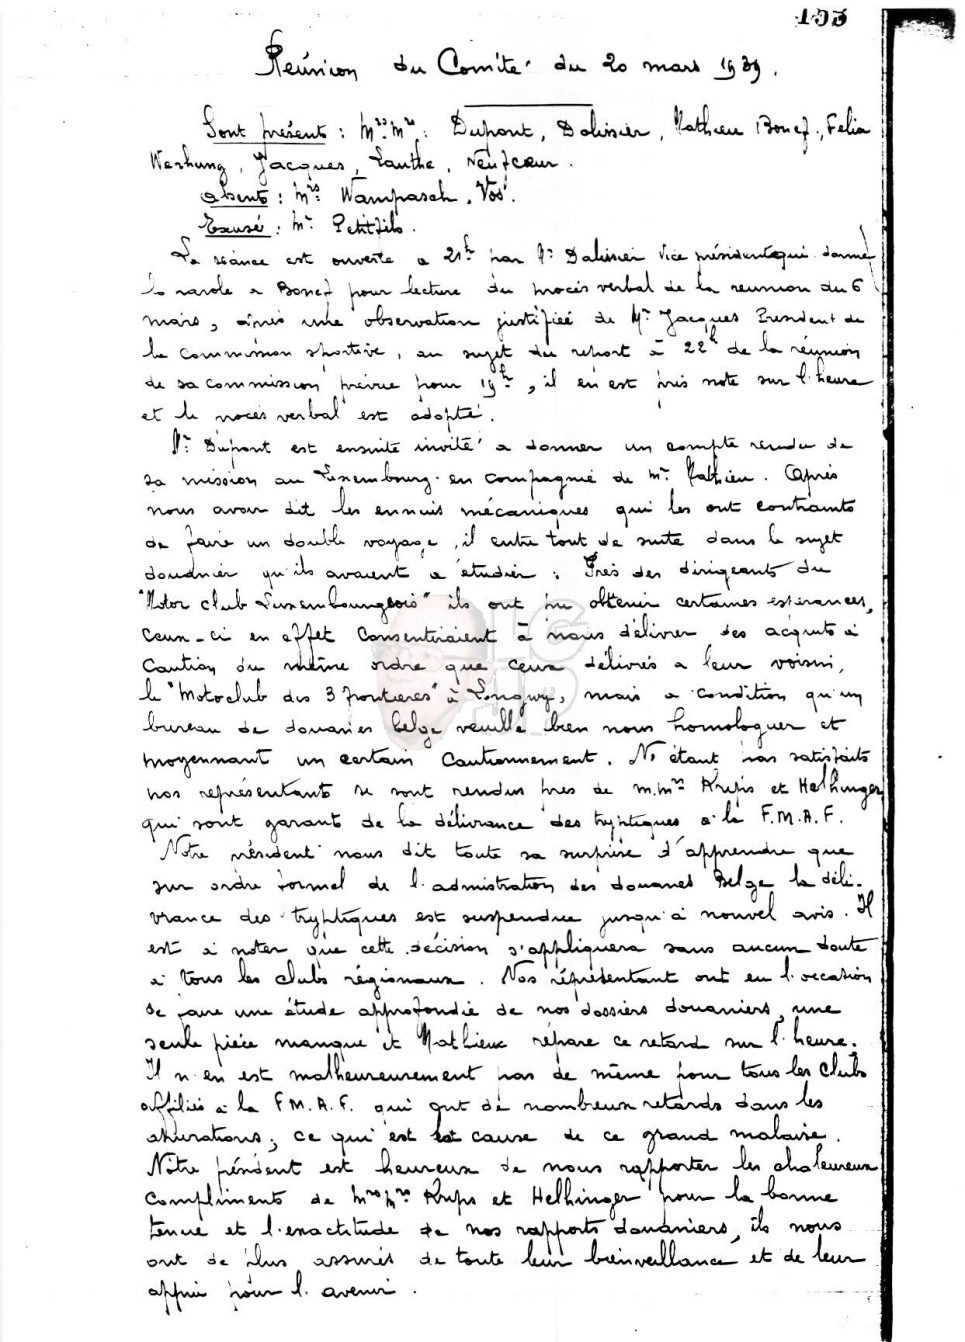 155
Réunion du Comité du 20 mars 1939.
Sont présents : Mrs Mrs : Dupont, Dalinier, Mathieu Bonef, Felix
Werhung, Jacques, Lanthe, Neufcœur.
Absents : Mrs Wampasch, Vos.
Excusé : Mr Petitfils.
La séance est ouverte a 21h par Mr Dalinier Vice président qui donne
la parole a Bonef pour lecture du procès verbal de la reunion du 6
mars, après une observation justifiée de Mr Jacques President de
la Commission sportive, au sujet du report à 22h de la réunion
de sa commission prévue pour 19h, il en est pris note sur l'heure
et le procès verbal est adopté.
Mr Dupont est ensuite invité a donner un compte rendu de
sa mission au Luxembourg en compagnie de Mr Mathieu. Après
nous avoir dit les ennuis mécaniques qui les ont contraints
de faire un double voyage, il entre tout de suite dans le sujet
douanier qu'ils avaient a étudier : Près des dirigeants du
"Motor club Luxembourgeois" ils ont pu obtenir certaines esperances,
Ceux-ci en effet Consentiraient à nous délivrer des acquits à
Caution du même ordre que ceux délivrés a leur voisin,
le "Motoclub des 3 frontières" à Longwy, mais a condition qu'un
bureau de douanes belge veuille bien nous homologuer et
moyennant un certain Cautionnement. N'étant pas satisfaits
nos représentants se sont rendus près de M.Mrs Krups et Helhinger
qui sont garant de la délivrance des tryptiques à la F.M.A.F.
Notre président nous dit toute sa surprise d'apprendre que
sur ordre formel de l'admistration des douanes Belge la déli-
vrance des tryptiques est suspendue jusqu'à nouvel avis. Il
est à noter que cette décision s'appliquera sans aucun doute
à tous les clubs régionaux. Nos réprésentant ont eu l'occasion
de faire une étude approfondie de nos dossiers douaniers, une
seule pièce manque et Mathieu répare ce retard sur l'heure.
Il n'en est malheureusement pas de même pour tous les Clubs
affiliés à la F.M.A.F. qui ont de nombreux retards dans les
apurations, ce qui est cause de ce grand malaise.
Notre président est heureux de nous rapporter les chaleureux
Compliments de Mrs Mrs Krups et Helhinger pour la bonne
tenue et l'exactitude de nos rapports douaniers, ils nous
ont de plus assurés de toute leur bienveillance et de leur
appui pour l'avenir.